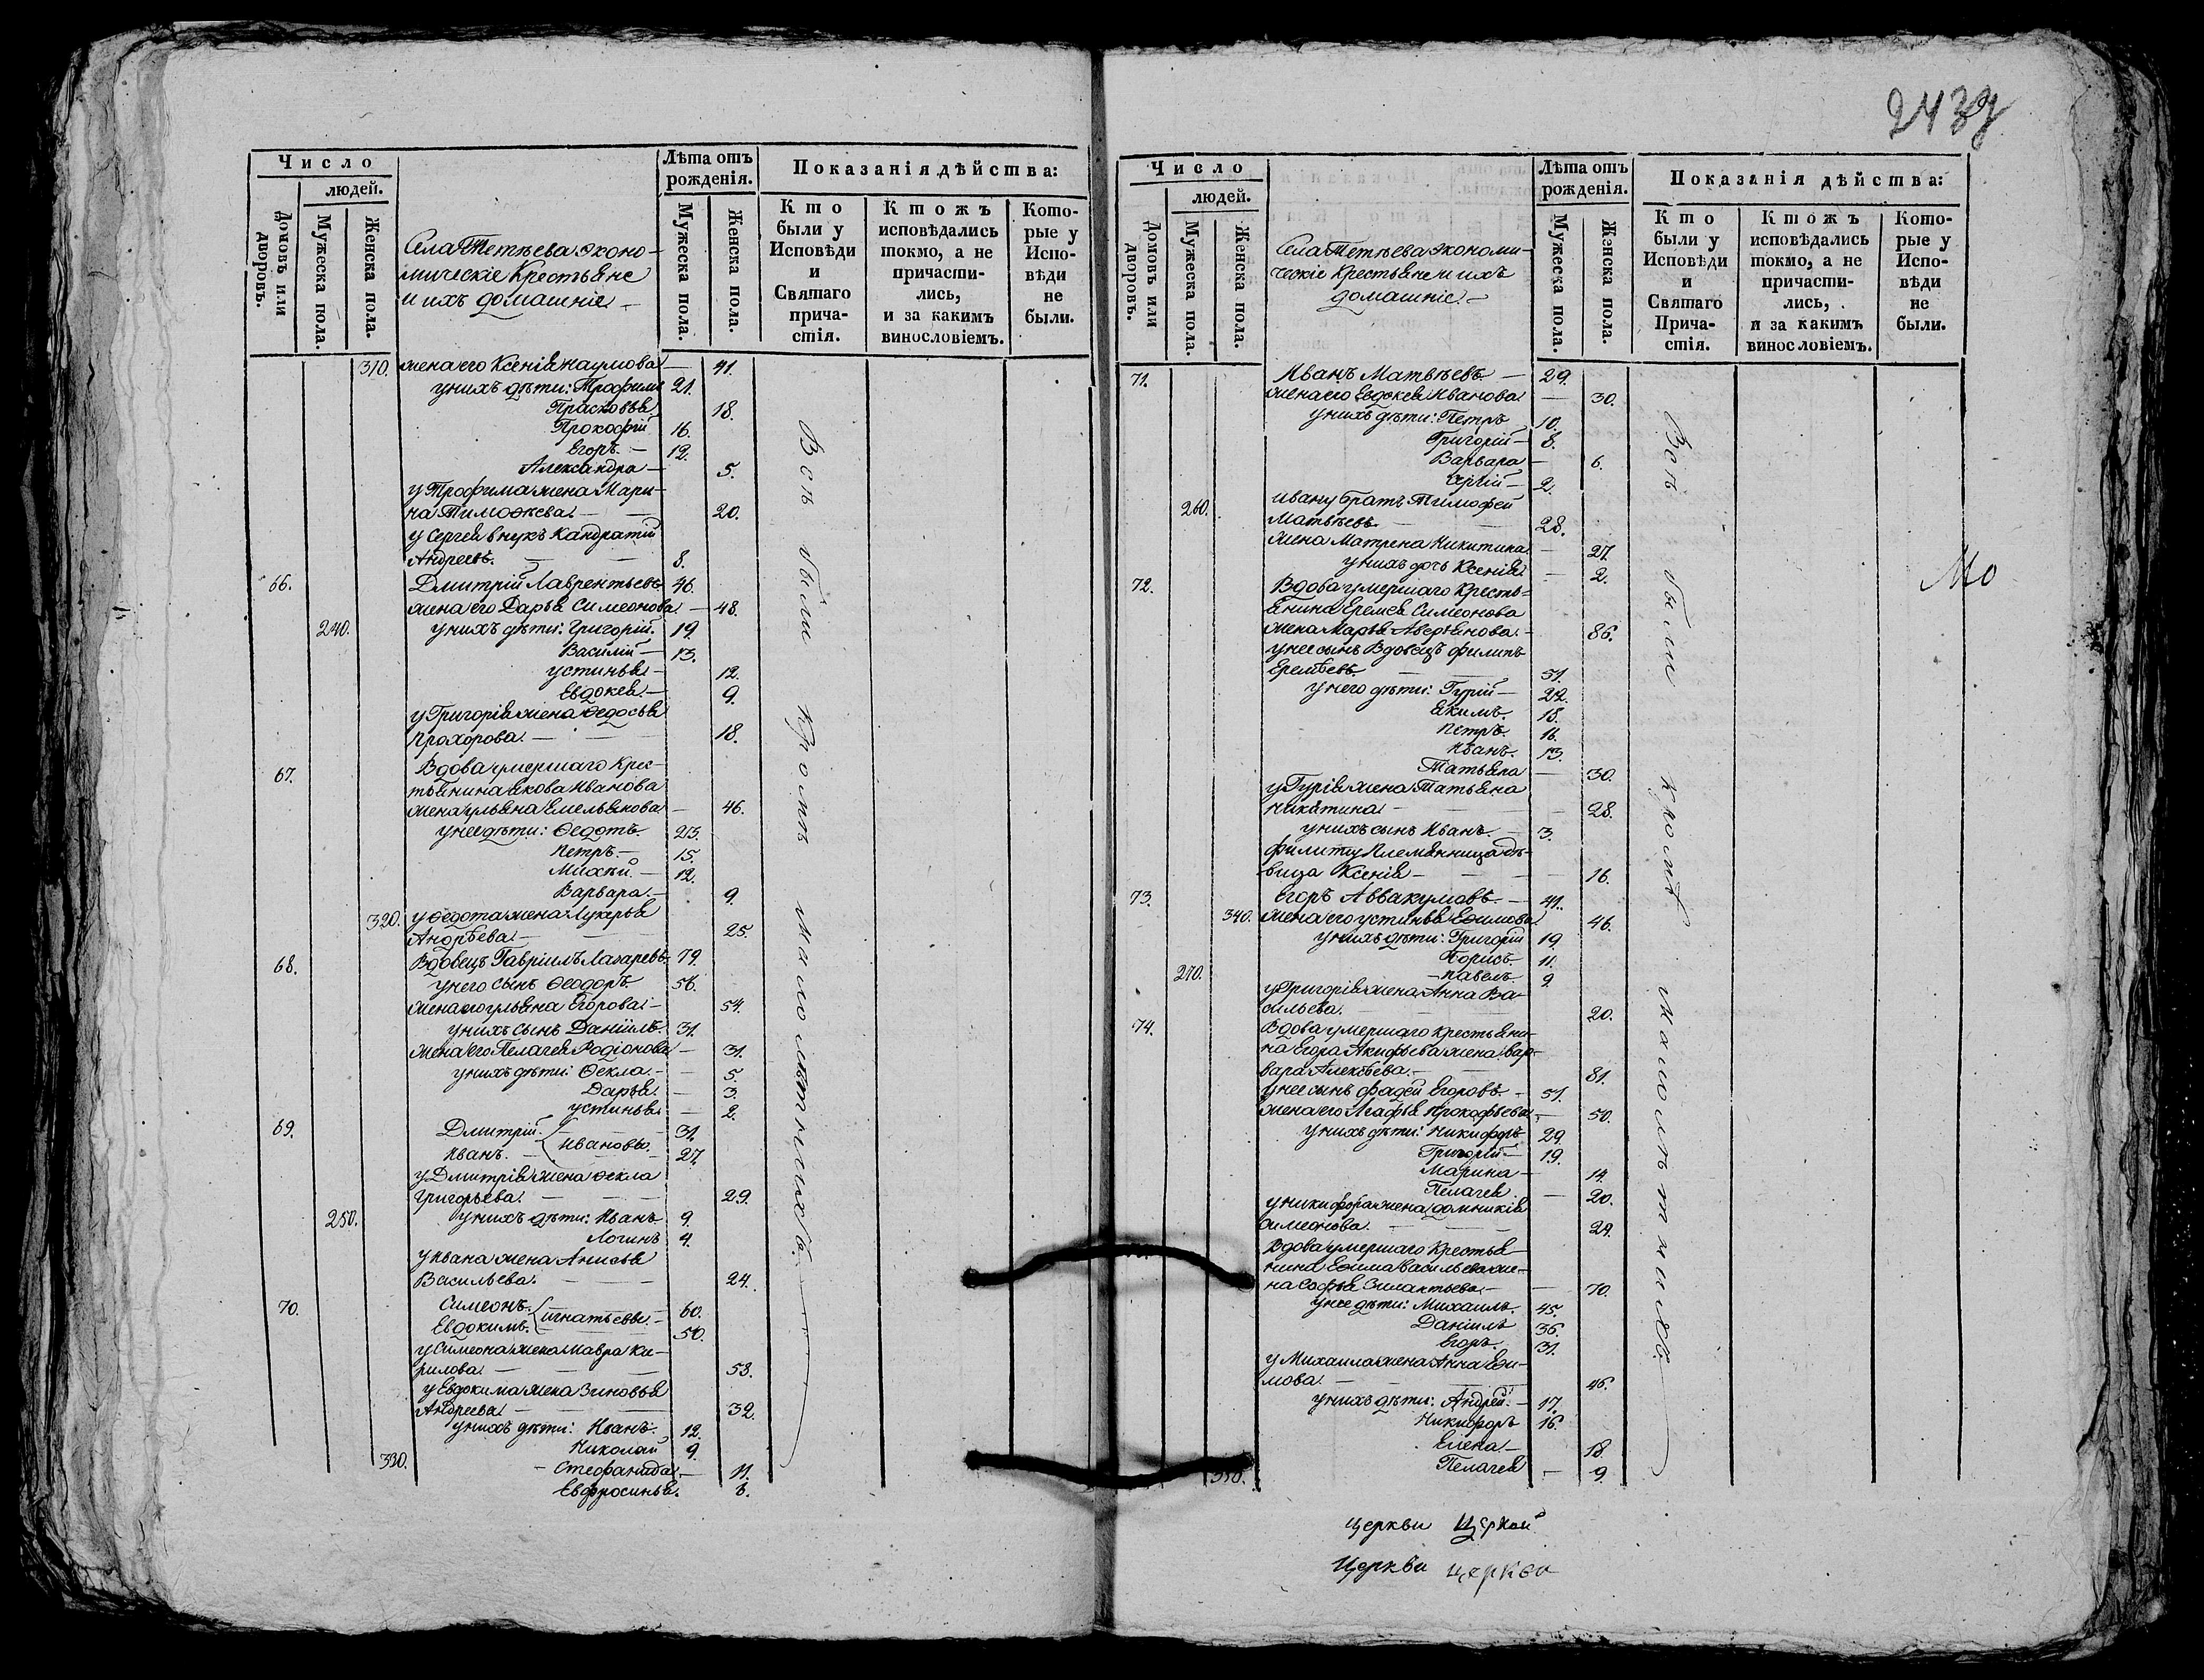 Число
людей.
Домовъ или дворовъ.
Мужеска пола.
Женска пола.
Села Тетѣева эконо-
мическіе Крестьяне
и ихъ домашніе
Лѣта отъ рожденія.
Мужеска пола.
Женска пола.
Показанія дѣйства:
Кто были у Исповѣди и Святаго причастія.
Ктожъ исповѣдались токмо, а не причастились, и за какимъ винословіемъ.
Которые у Исповѣди не были.
310. жена его Ксенія Наумова — 41.
у нихъ дѣти: Трофимъ 21.
Прасковья 18.
Прокофій 16.
Егоръ. — 12.
Александра — 5.
у Трофима жена Мари-
на Тимофѣева. — 20.
у Сергея внукъ Кандратій
Андреевъ. — 8.
66. Дмитрій Лаврентьевъ 46.
жена его Дарья Симеонова — 48.
240. у нихъ дѣти: Григорій. 19.
Василій — 13.
Устинья — 12.
Евдокея. — 9.
у Григорія жена Ѳедосья
Прохорова. — 18.
67. Вдова умершаго Крес-
тьянина Якова Иванова
жена Ульяна Емельянова — 46.
у нее дѣти: Ѳедотъ. 23.
Петръ. — 15.
Михѣй. — 12.
Варвара. — 9.
320. у Ѳедота жена Лукерья
Андрѣева. — 25.
68. Вдовецъ Гавріилъ Лазаревъ 79.
у него сынъ Ѳеодоръ. 56.
жена его Ульяна Егорова. — 54.
у нихъ сынъ Даніилъ. 31.
жена его Пелагея Родіонова — 31.
у нихъ дѣти: Ѳекла. — 5.
Дарья. — 3.
Устинья. — 2.
69. Дмитрій. — 31.
Ивановы.
Иванъ. — 27.
у Дмитрія жена Ѳекла
Григорьева. — 29.
250. у нихъ дѣти: Иванъ 9.
Логинъ 4.
у Ивана жена Анисья
Васильева. — 24.
70. Симеонъ. 60.
Игнатьевы. —
Евдокимъ. 50.
у Симеона жена Мавра Ки-
рилова. — 58.
у Евдокима жена Зиновья
Андреева. — 32.
у нихъ дѣти: Иванъ. 12.
Николай 9.
330. Стефанида. — 11.
Евфросинья. 6.
Всѣ были кромѣ малолѣтнихъ.
243
Число
людей.
Домовъ или дворовъ.
Мужеска пола.
Женска пола.
Села Тетѣева экономи-
ческіе Крестьяне и ихъ
домашніе. —
Лѣта отъ рожденія.
Мужеска пола.
Женска пола.
Показанія дѣйства:
Кто были у Исповѣди и Святаго Причастія.
Ктожъ исповѣдались токмо, а не причастились, и за какимъ винословіемъ.
Которые у Исповѣди не были.
71. Иванъ Матвѣевъ — 29.
жена его Евдокея Иванова — 30.
у нихъ дѣти: Петръ 10.
Григорій — 8.
Варвара — 6.
2.
260. Ивану братъ Тимофей
Матвѣевъ. — 28.
жена Матрена Никитина — 27.
у нихъ дочь Ксенія. — 2.
72. Вдова умершаго Кресть-
янина Еремея Симеонова
жена Марья Аверьянова. — 86.
у нее сынъ Вдовецъ Филипъ
Еремѣевъ. — 51.
у него дѣти: Гурій — 22.
Якимъ. 18.
Петръ. 16.
Иванъ. 13.
Татьяна — 30.
у Гурія жена Татьяна
Никитина — 28.
у нихъ сынъ Иванъ. — 3.
Филипу племянница дѣ-
вица Ксенія — 16.
73. Егоръ Аввакумовъ. — 41.
340. жена его Устинья Ефимова 46.
у нихъ дѣти: Григорій 19.
Борисъ. 11.
270. — Павелъ. 9.
у Григорія жена Анна Ва-
сильева. 20.
74. Вдова умершаго крестьяни-
на Егора Акифьева жена Вар-
вара Алексѣева. — 81.
у нее сынъ Фадей Егоровъ. — 51.
жена его Агафья Прокофьева — 50.
у нихъ дѣти: Никифоръ 29.
Григорій — 19.
Марина — 14.
Пелагея — 20.
у Никифора жена Домникія
Симеонова. — 24.
Вдова умершаго Крестья-
нина Ефима Васильева же-
на Софья Зилантьева. — 70.
у нее дѣти: Михаилъ. 45.
Даніилъ 36.
Егоръ. 31.
у Михаила жена Анна Ефи-
мова. — 46.
у нихъ дѣти: Андрей. — 17.
Никифоръ 16.
Елена. — 18.
350. Пелагея — 9.
Всѣ были кромѣ малолѣтнихъ.
Мо
Церкви Церкви
Церкви церкви